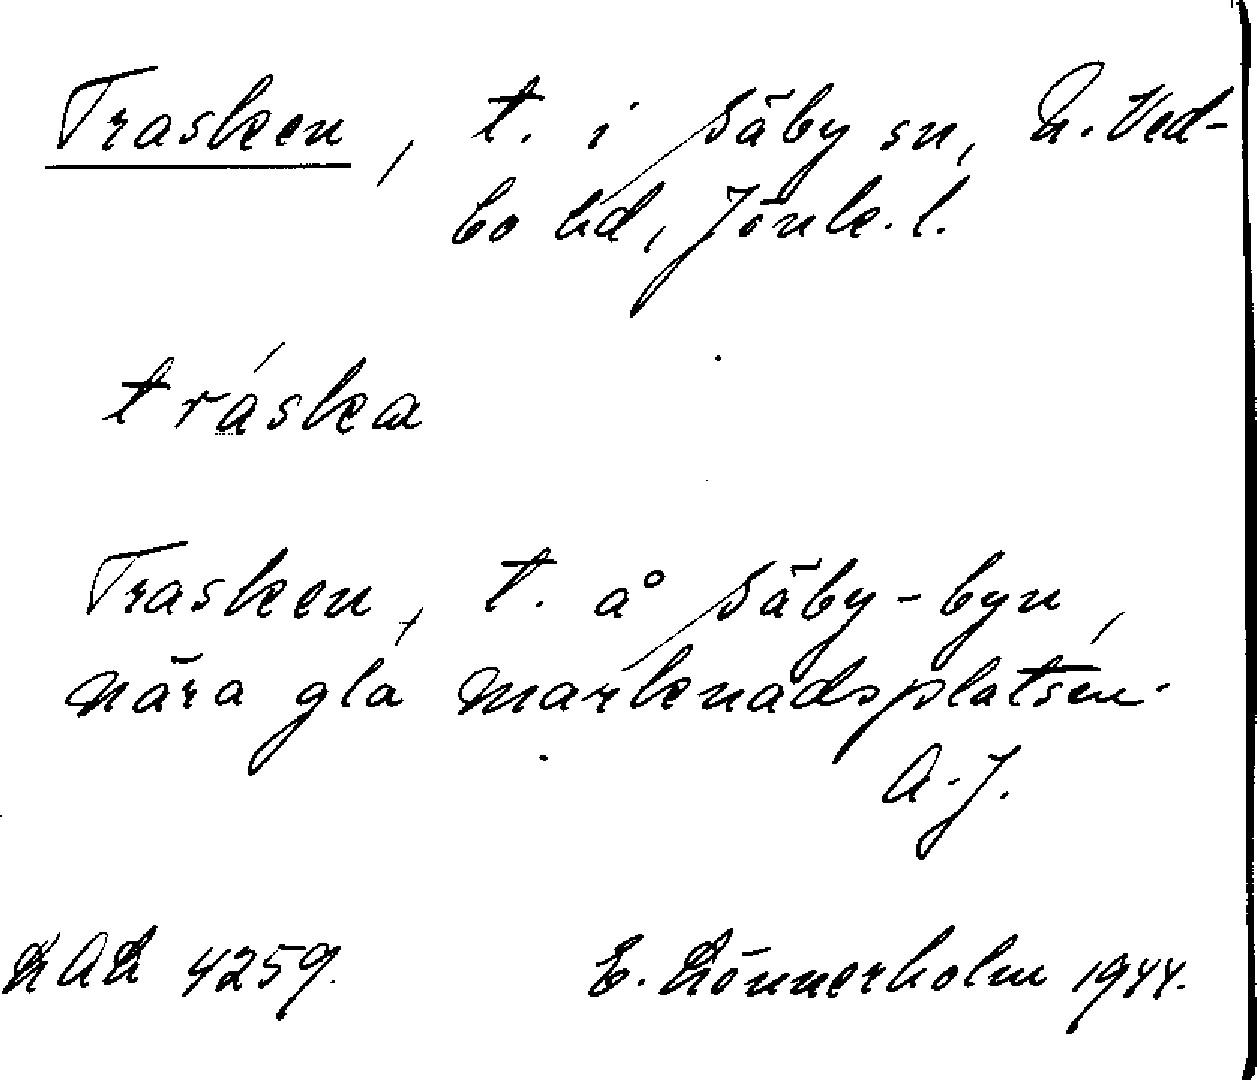 Trasken, t. i Säby sn, N. Ved-
bo hd, Jönk. l.
tráska
Trasken, t. å Säby-byn,
nära gla marknadsplatsen.
A. J.
4259. E. Lönnerholm 1944.